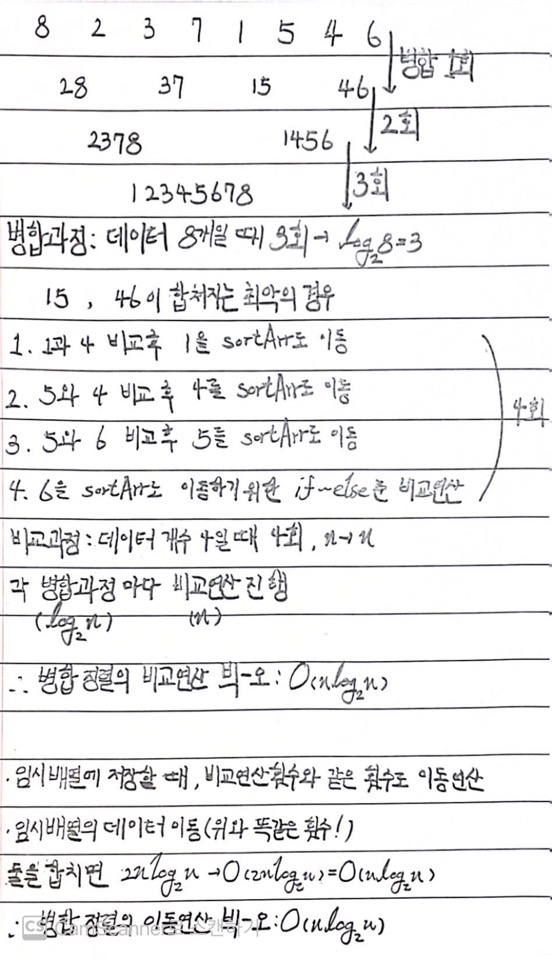 8 2 3 7 1 5 4 6
병합 1회
28 37 15 46
2회
2378 1456
3회
12345678
병합과정: 데이터 8개일 때 3회 → log₂8=3
15, 46이 합쳐지는 최악의 경우
1. 1과 4 비교후 1을 sortArr로 이동
2. 5와 4 비교 후 4를 sortArr로 이동
3. 5와 6 비교후 5를 sortArr로 이동
4. 6을 sortArr로 이동하기위한 if~else문 비교연산
4회
비교과정: 데이터 개수 4일 때 4회, n→n
각 병합과정 마다 비교연산 진행
(log₂n) (n)
∴ 병합 정렬의 비교연산 빅-오: O(nlog₂n)
·임시배열에 저장할 때, 비교연산횟수와 같은 횟수로 이동연산
·임시배열의 데이터 이동(위와 똑같은 횟수!)
둘을 합치면 2nlog₂n → O(2nlog₂n)=O(nlog₂n)
∴ 병합 정렬의 이동연산 빅-오: O(nlog₂n)
CS CamScanner로 스캔하기